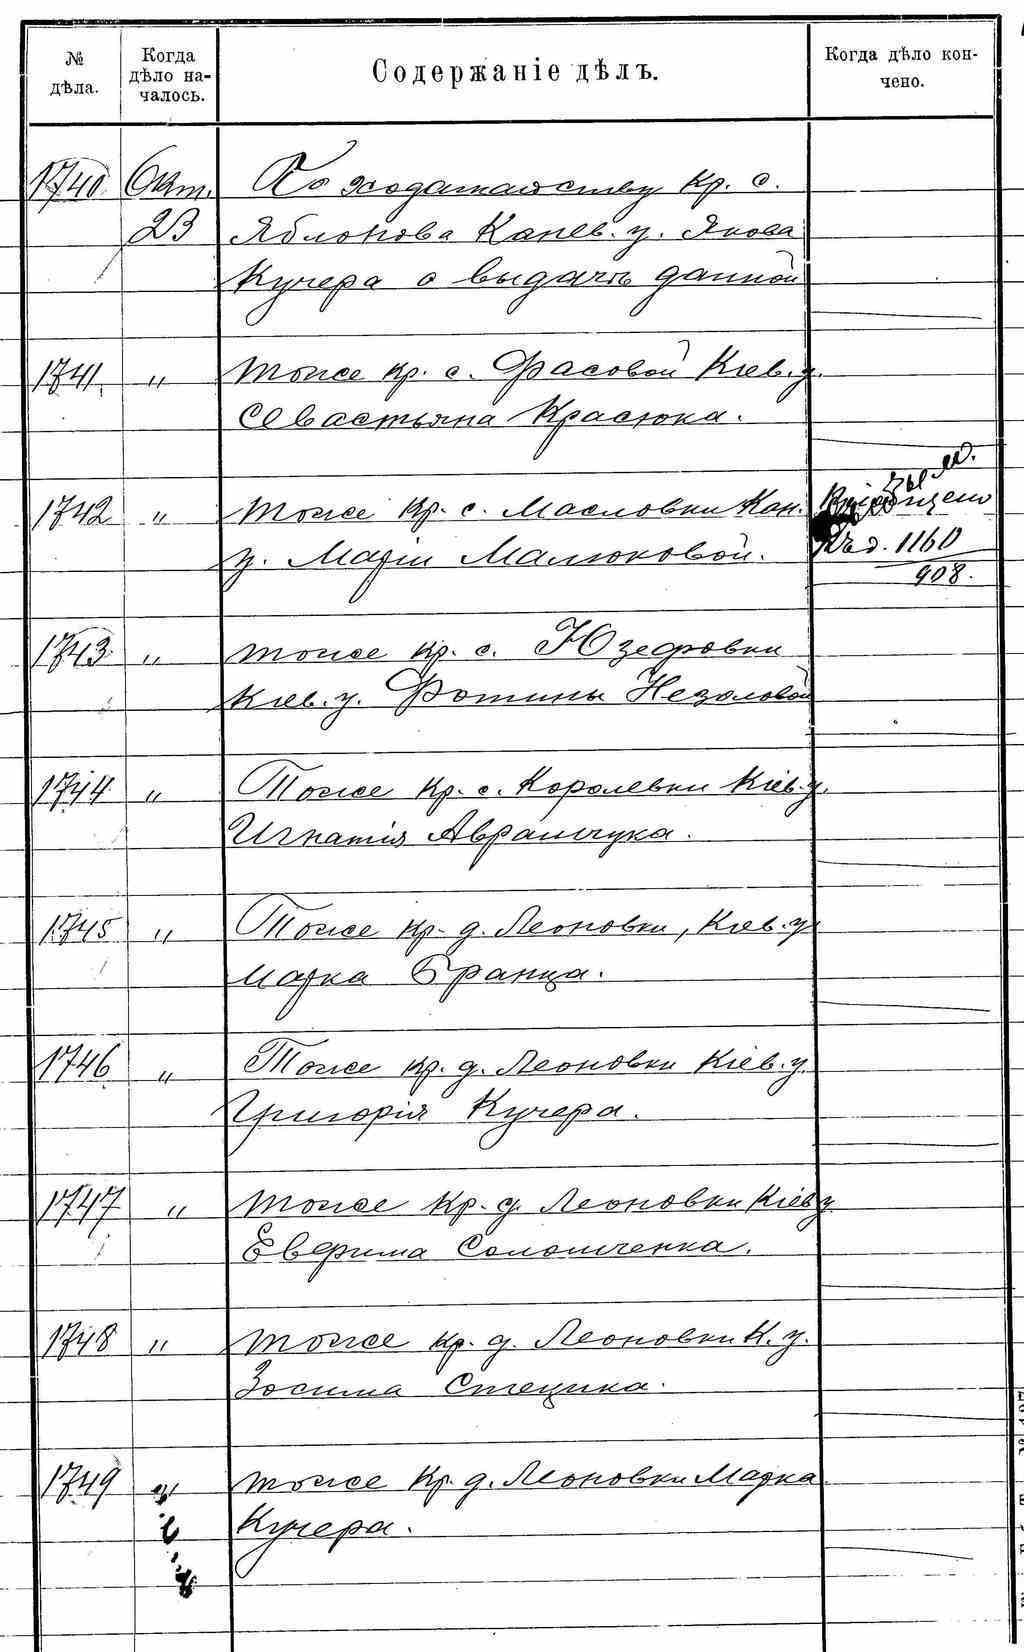 № дѣла.
Когда дѣло на-
чалось.
Содержаніе дѣлъ.
Когда дѣло кон-
чено.
1740 Окт. По ходатайству кр. с.
23 Яблонова Канев. у. Якова
Кучера о выдачѣ данной
1741 „ тоже кр. с. Фасовой Кіев. у.
Севастьяна Красюка.
1742 „ тоже кр. с. Масловки Кан.
у. Маріи Малюковой.
къ д. 1160
908.
1743 „ тоже кр. с. Юзефовки
Кіев. у. Фотины
1744 „ Тоже кр. с. Королевки Кіев. у.
Игнатія Аврамчука.
1745 „ Тоже кр. д. Леоновки, Кіев. у.
Марка Бранца.
1746 „ Тоже кр. д. Леоновки Кіев. у.
Григорія Кучера.
1747 „ тоже кр. д. Леоновки Кіев у
Евфима Соломченка.
1748 „ тоже кр. д. Леоновки К. у.
Зосима Стецика.
1749 „ тоже кр. д. Леоновки Марка
Кучера.